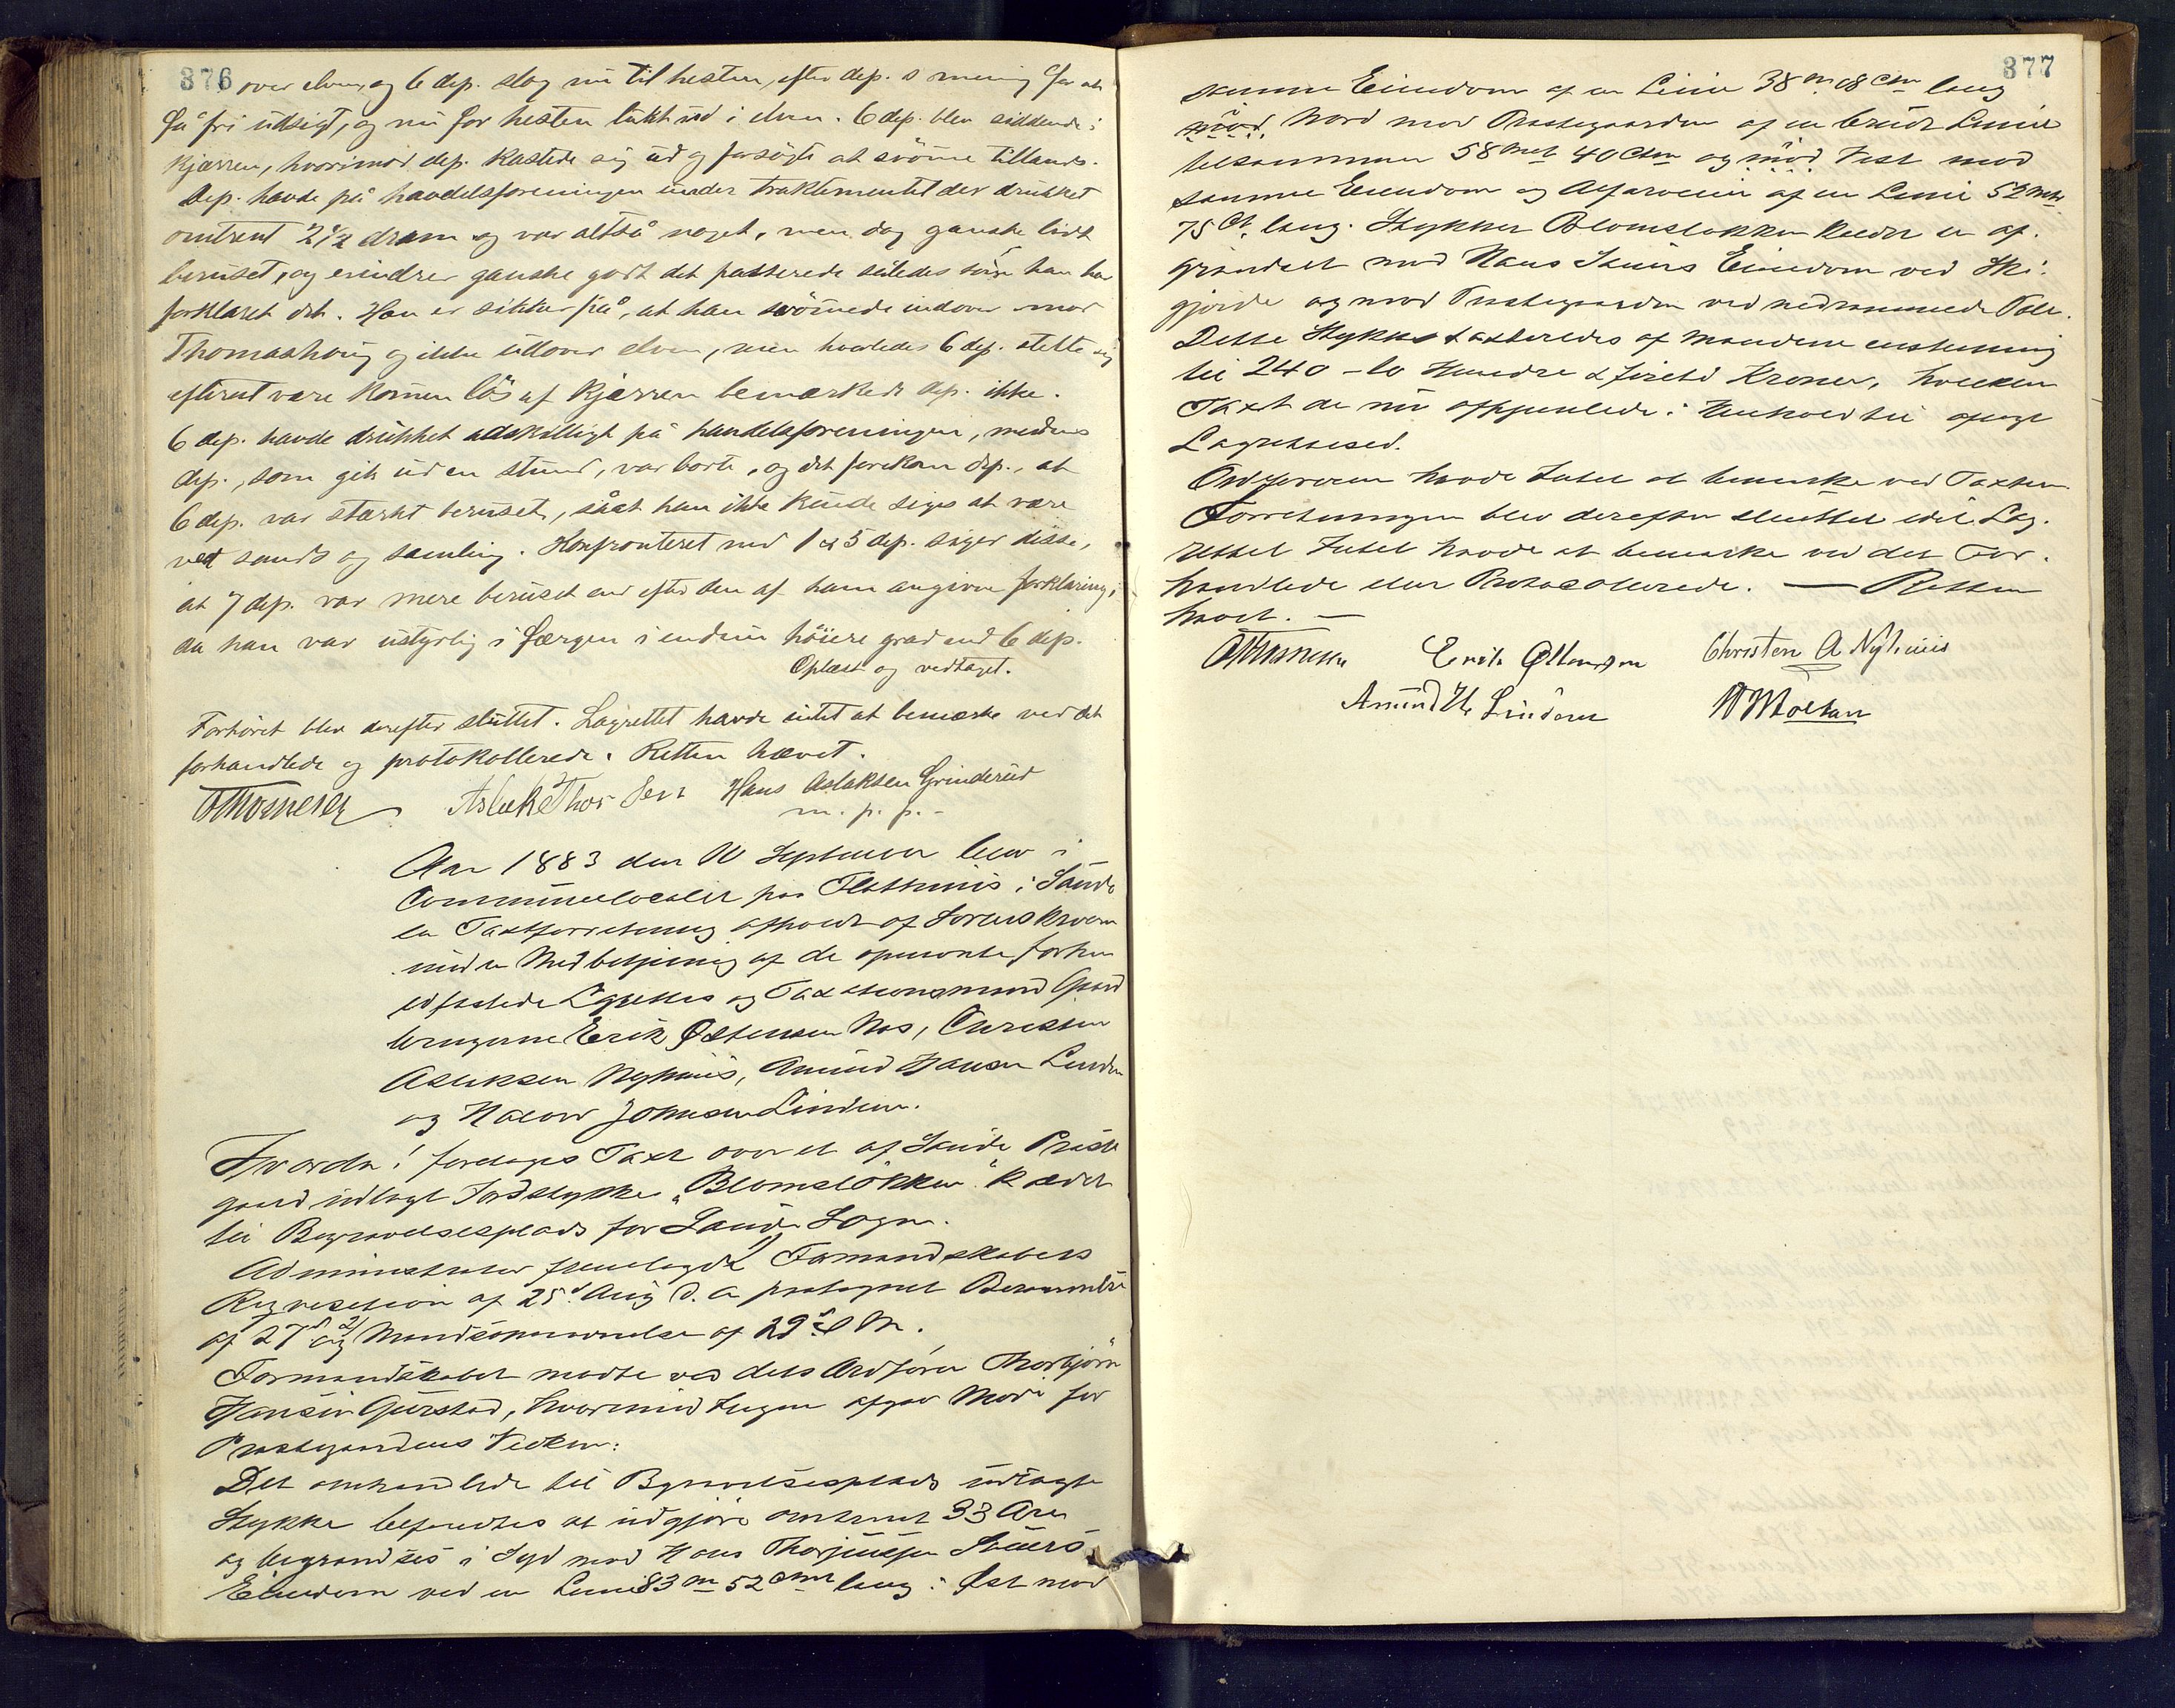 376
over elven, og 6 dep. slog nu til hesten, efter dep. s mening for at
få fri udsigt, og nu for hesten lukt ud i elven. 6 dep. blev siddende i
kjærren, hvorimod dep. kastede sig ud og forsögte at svömme tillands.
Dep. havde på handelsforeningen under traktementet der drukket
omtrent 2½ dram og var altså noget, men dog ganske lidt
beruset, og erindrer ganske godt det passerede således som han har
forklaret det. Han er sikker på, at han svömmede indover mod
Thomashaug og ikke udover elven, men hvorledes 6 dep. stellte sig
efterat være kommen lös af kjærren bemærkede dep. ikke.
6 dep. havde drukket adskilligt på handelsforeningen, medens
dep., som gik ud en stund, var borte, og det forekom dep., at
6 dep. var stærkt beruset, såat han ikke kunde siges at være
ved sands og samling. Konfronteret med 1 & 5 dep. siger disse,
at 7 dep. var mere beruset end efter den af ham angivne forklaring,
da han var ustyrlig i færgen i endnu höiere grad end 6 dep.
Oplæst og vedtaget.
Forhöret blev derefter sluttet. Lagrettet havde intet at bemærke ved det
forhandlede og protokollerede. Retten hævet.
Aslak Thorsen Hans Aslaksen Grinderud
m. p. p. -
Aar 1883 den September blev i
Communelocalet paa Flathuus i Saude
en Taxtforretning afholdt af Sorenskriveren
under Medbetjening af de opnevnte forhen
edfæstede Lagrettes og Taxationsmænd Gaard
brugerne Erik Østensen Næs, Christen
Aslaksen Nyhuus, Amund Hansen Linden
og Halvor Johnsen Linden.
Hvorda: foretages Taxt over et af Saude Præste
gaard udlagt Jordstykke "Blomsløkken" kaldet
til Begravelsesplads for Saude Sogn.
Administrator fremlagde 1) Formandskabets
Reqvisition af 25de Aug d. A. paategnet Berammelse
af 27de og 2) Mandsopnævnelse af 29de s. M.
Formandskabet mødte ved dets Ordfører Thorbjørn
Hansen Gurstad, hvorimod Ingen afgav Møde for
Præstegaardens Vedkom:
Det omhandlede til Begravelsesplads udlagte
Stykke befandtes at udgjøre omtrent 33 Arer
og begrændses i Syd mod Hans Thorjussen
Eiendom ved en Linie 83 m 52 ctm lang: Øst mod
377
samme Eiendom af en Linie 38 m 08 Ctm lang
mod Nord mod Præstegaarden af en brudt Linie
tilsammen 58 Met 40 Ctm og mod Vest mod
samme Eiendom og Alfarveien af en Linie 52 Met
75 Ct. lang. Stykket Blomsløkken kaldet er af.
grændset mod Hans Eiendom ved Ski.
gjærde og mod Præstegaarden ved nedrammede Pæle.
Dette Stykke taxteredes af Mændene enstemmig
til 240 – to Hundre & fireti Kroner, hvilken
Taxt de nu afhjemlede i Henhold til aflagt
Lagrettesed.
Ordføreren havde Intet at bemærke ved Taxten.
Forretningen blev derefter sluttet idet Lag.
rettet Intet havde at bemærke ved det For.
handlede eller Protocollerede. — Retten
hævet. —
Erik Østensen Christen A Nyhuus
Amund H Linden